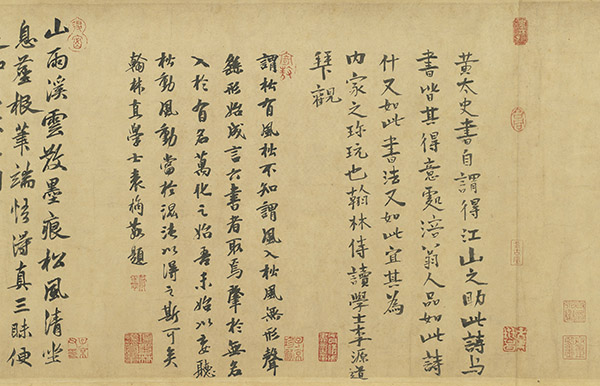 黃太史書自謂得江山之助此詩與
書皆其得意處涪翁人品如此詩
什又如此書法又如此宜其為
內家之珍玩也翰林侍讀學士李源道
拜觀
謂松有風松不知謂風入松風無形聲
繇形始成言六書者取焉肇於無名
入於有名萬化之始吾未始以妄聽
松動風動當於混沌以得之斯可矣
翰林直學士袁桷敬題
山雨溪雲散墨痕松風清坐
息塵根筆端悟得真三昧便